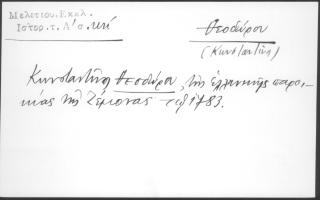 Μελετίου.Εκκλ.
Ιστορ.τ.Α'σ.
Θεοδώρου
(Κωνσταντίνος)
Κωνσταντίνος Θεοδώρου, της ελληνικής παροι-
κίας της Ζέμονας 1783.